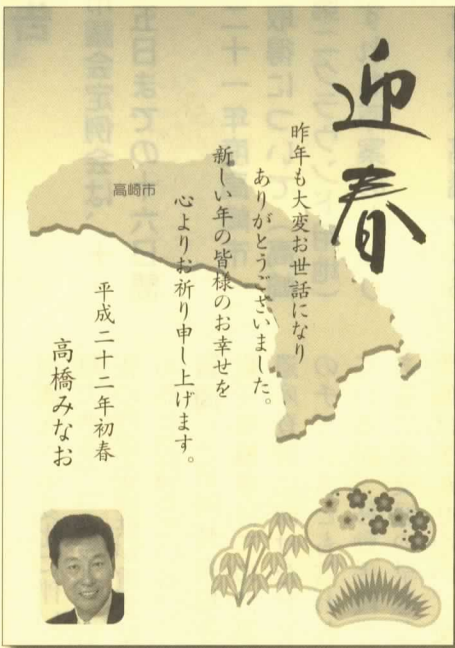 迎春
昨年も大変お世話になり
ありがとうございました。
新しい年の皆様のお幸せを
心よりお祈り申し上げます。
平成二十二年初春
高橋みなお
高崎市